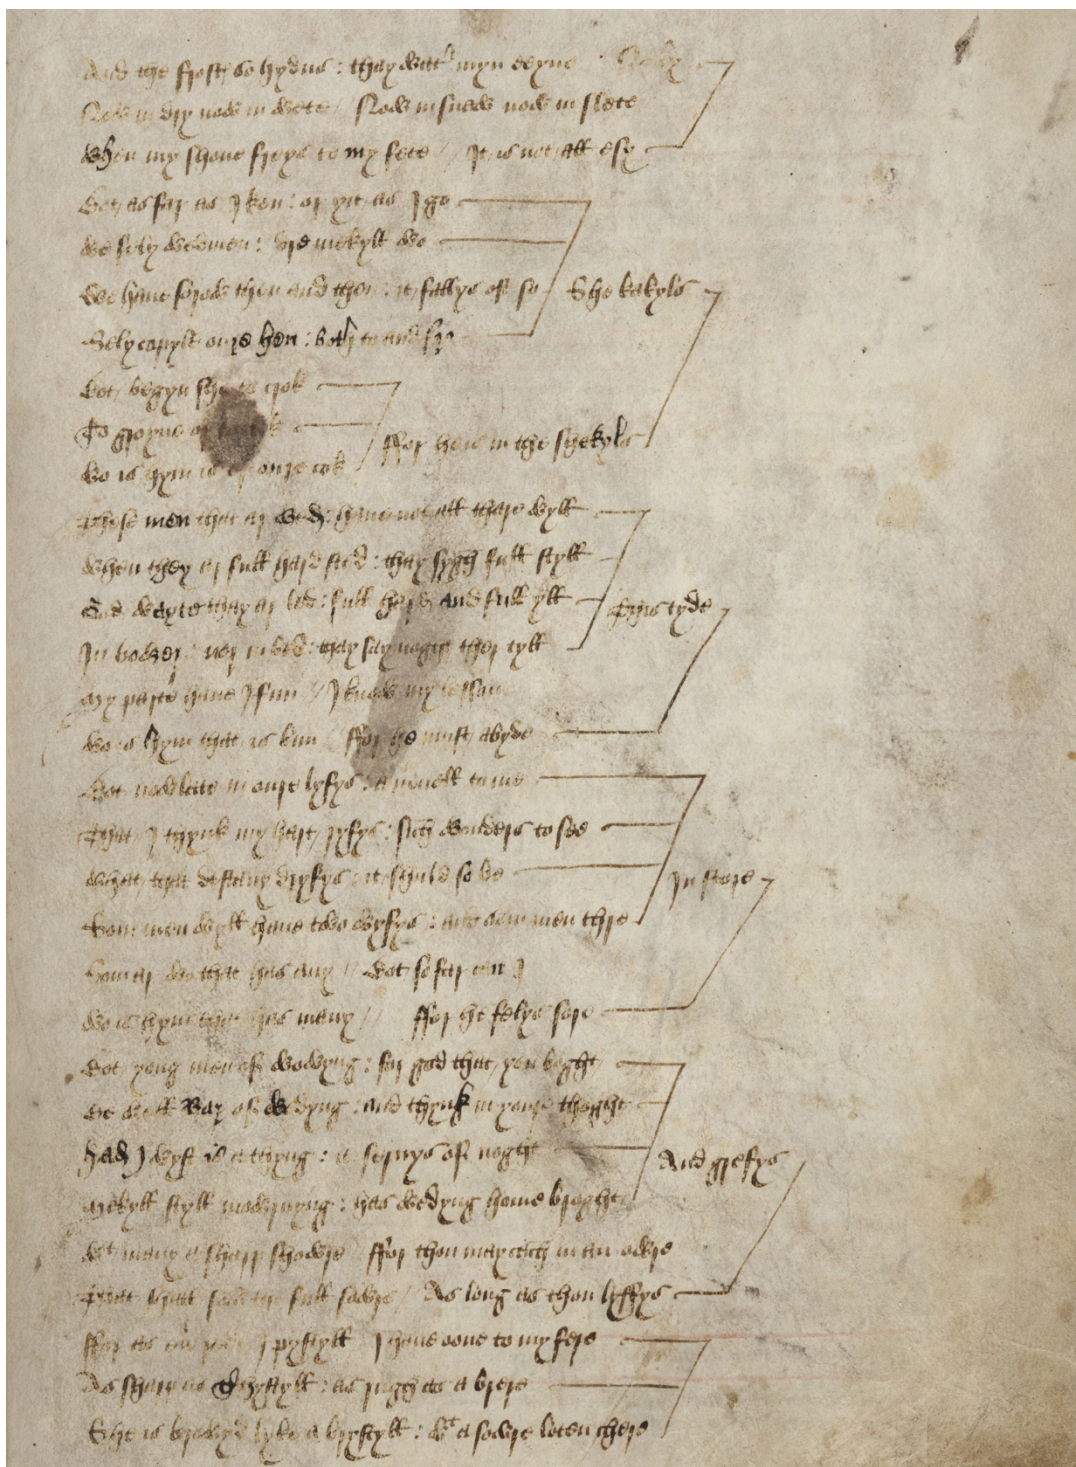 And the frost so hydus : thay water myn eeyne No ly
Now in dry now in wete / Now in snaw now in slete
When my shone freys to my fete / It is not all esy
Bot as far as I ken : or yit as I go
We sely wedmen : dre mekyll wo
We haue sorow then and then : it fallys oft so She kakyls
Sely copyle oure hen : both to and fro
Bot begyn she to crok
To groyne or
Wo is hym is of oure cok ffor he is in the shekyls
These men that ar wed : haue not all thare wyll
When they ar full hard sted : thay sygh full styll
God wayte thay ar led : full hard and full yll This tyde
In bower : nor in bed : thay say noght ther tyll
My parte haue I fun // I know my lesson
Wo is hym that is bun / ffor he must abyde
Bot now late in oure lyfys : a meruell to me
That I thynk my hart ryfys : sich wonders to see
What that destany dryfys : it shuld so be In store
Som men wyll haue two wyfys : and som men thre
Som ar wo that has any // Bot so far can I
Wo is hym that has many // ffor he felys sore
Bot yong men of wowyng : for god that you boght
Be well war of wedyng : and thynk in youre thoght
had I wyst is a thyng : it seruys of noght And grefys
Mekyll styll mowrnyng : has wedyng home broght
Wt many a sharp showre / ffor thou may cach in an owre
That shall sow the full sowre / As long as thou lyffys
ffor as euer red I pystyll I haue oone to my fere
As sharp as thystyll : as rugh as a brere
She is browyd lyke a brystyll : wt a sowre loten chere